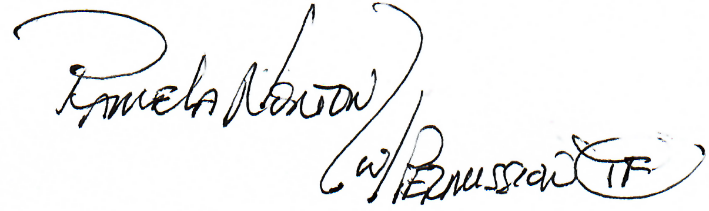 PAMELA NORTON
W/PERMISSION TF